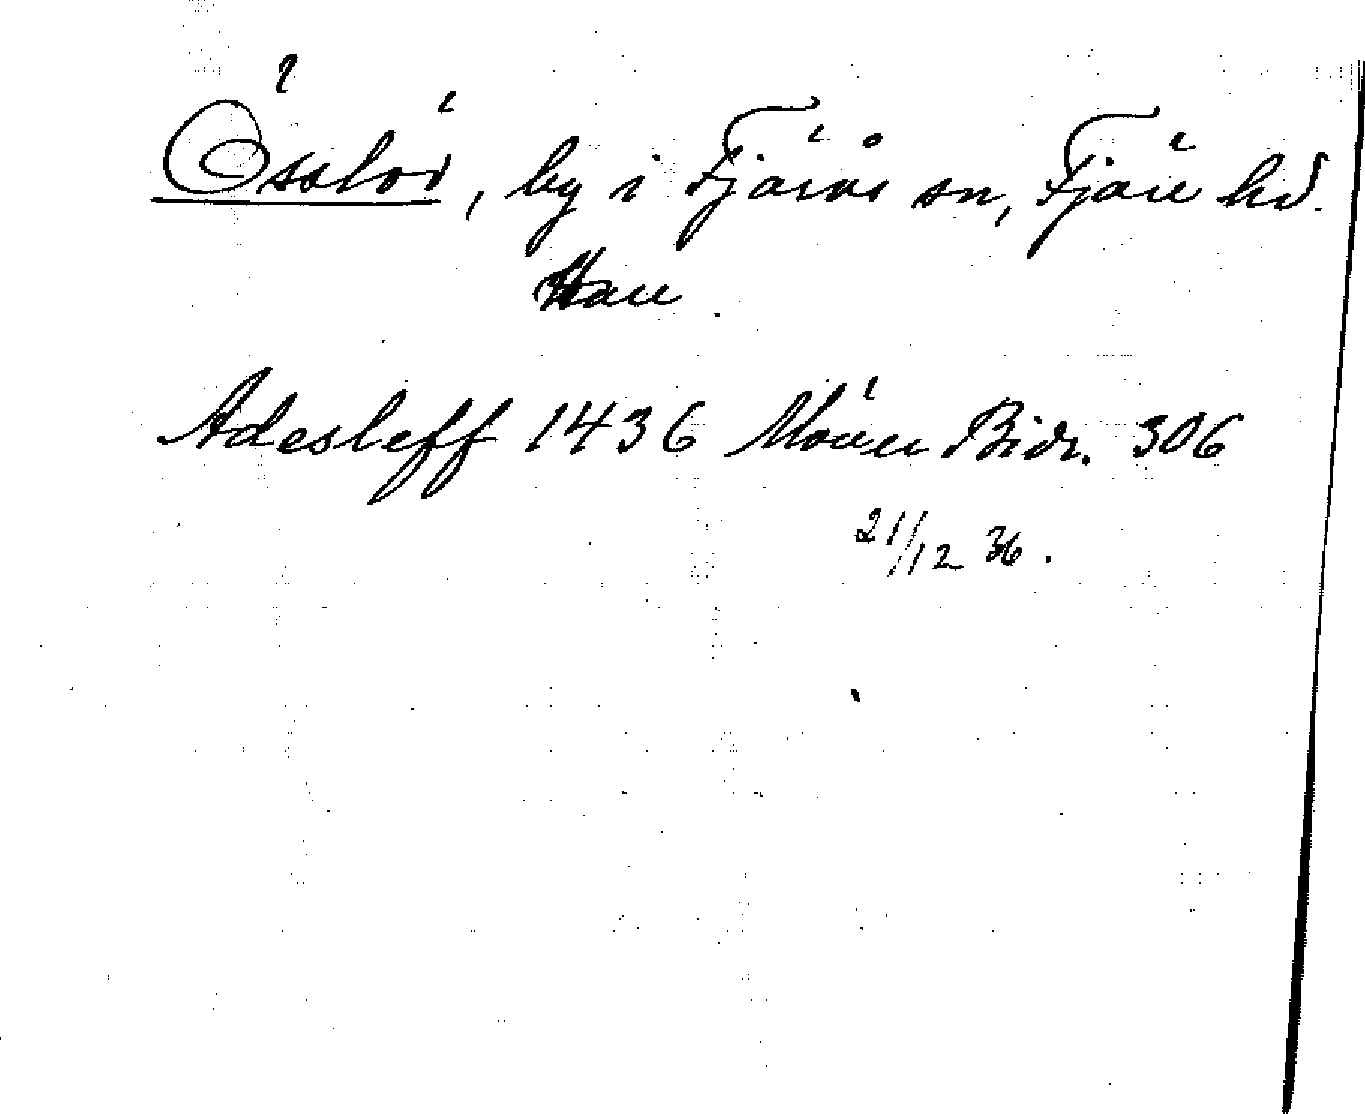 Össlöv, by i Fjärås sn, Fjäre hd.
Hall
Adesleff 1436 Mörner Bidr. 306
21/12 36.